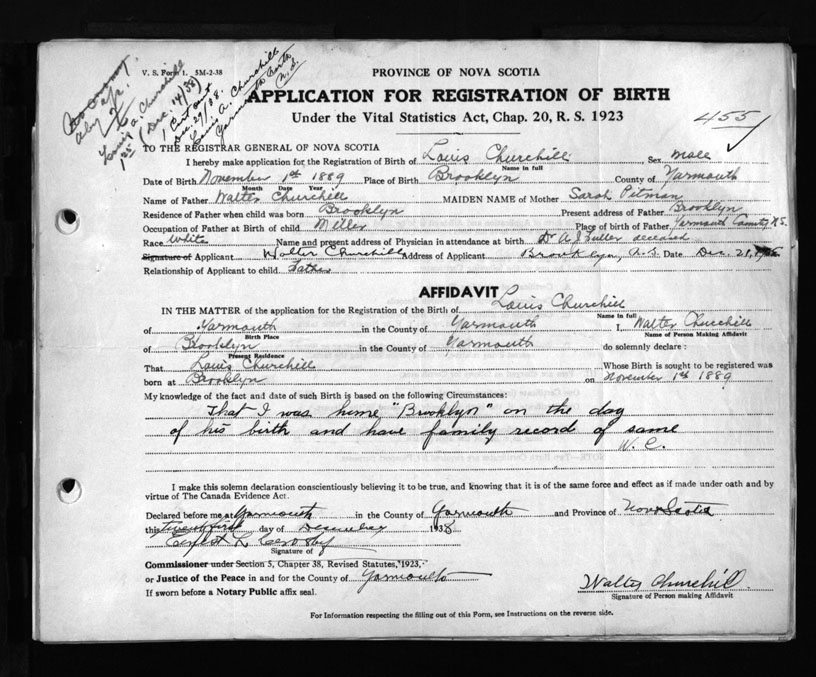 V. S. Form 1. 5M-2-38
PROVINCE OF NOVA SCOTIA
APPLICATION FOR REGISTRATION OF BIRTH
Under the Vital Statistics Act, Chap. 20, R. S. 1923
455
Louis A. Churchill
Dec 14/38
1 Cert
Dec 29/38
Louis A. Churchill
Yarmouth North
N. S.
1.25
TO THE REGISTRAR GENERAL OF NOVA SCOTIA
I hereby make application for the Registration of Birth of Louis Churchill Sex Male
Name in full
Date of Birth November 1st 1889 Place of Birth Brooklyn County of Yarmouth
Month Date Year
Name of Father Walter Churchill MAIDEN NAME of Mother Sarah Pitman
Residence of Father when child was born Brooklyn Present address of Father Brooklyn
Occupation of Father at Birth of child Miller Place of birth of Father Yarmouth County N.S.
Race White Name and present address of Physician in attendance at birth Dr A. J. Fuller deceased
Signature of Applicant Walter Churchill Address of Applicant Brooklyn, N.S. Date Dec. 21,
Relationship of Applicant to child Father
AFFIDAVIT
IN THE MATTER of the application for the Registration of the Birth of Louis Churchill
Name in full
of Yarmouth in the County of Yarmouth I, Walter Churchill
Birth Place Name of Person Making Affidavit
of Brooklyn in the County of Yarmouth do solemnly declare:
Present Residence
That Louis Churchill Whose Birth is sought to be registered was
born at Brooklyn on November 1st 1889
My knowledge of the fact and date of such Birth is based on the following Circumstances:
That I was home "Brooklyn" on the day
of his birth and have family record of same
W. C.
I make this solemn declaration conscientiously believing it to be true, and knowing that it is of the same force and effect as if made under oath and by
virtue of The Canada Evidence Act.
Declared before me at Yarmouth in the County of Yarmouth and Province of Nova Scotia
this twenty first day of December 1938
Ernest L Crosby
Signature of
Commissioner under Section 5, Chapter 38, Revised Statutes, 1923,
or Justice of the Peace in and for the County of Yarmouth
If sworn before a Notary Public affix seal.
Walter Churchill.
Signature of Person making Affidavit
For Information respecting the filling out of this Form, see Instructions on the reverse side.